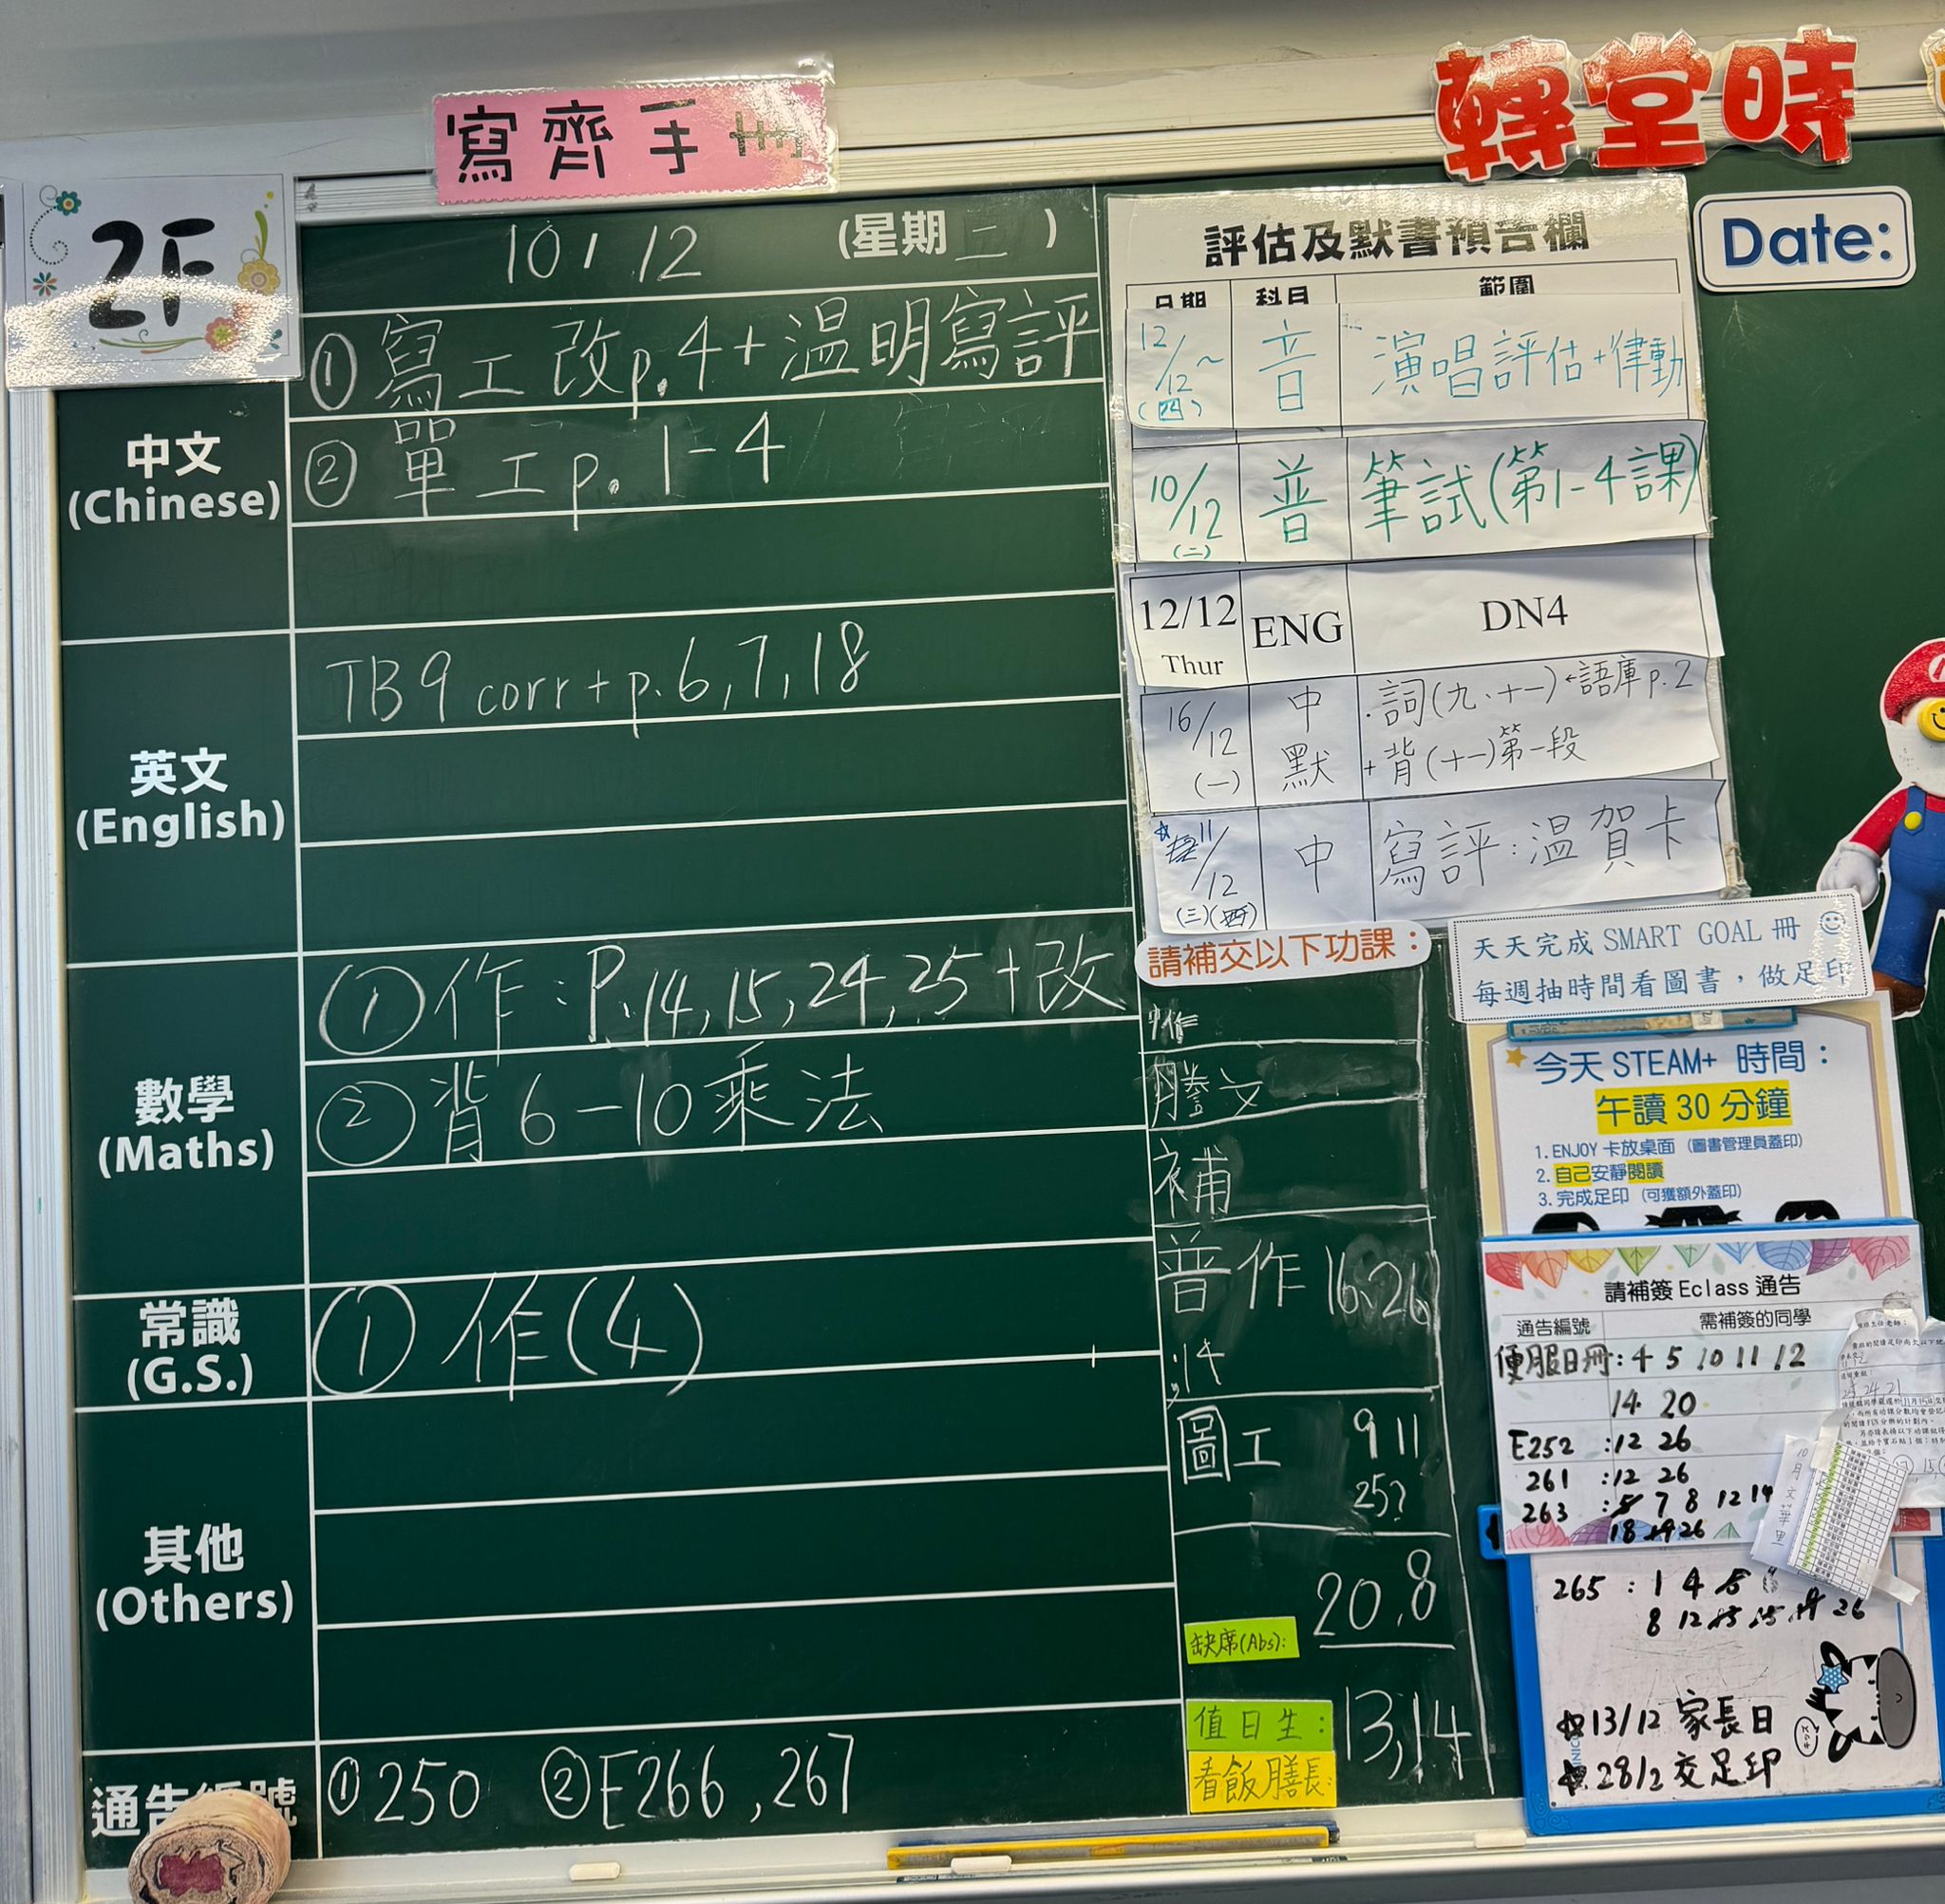 寫齊手冊
轉堂時
2F
10 / 12 (星期二)
中文
(Chinese)
①寫工改p.4+温明寫評
②單工p.1-4
英文
(English)
TB9 corr+p.6,7,18
數學
(Maths)
①作:P.14,15,24,25+改
②背6-10乘法
常識
(G.S.)
①作(4)
其他
(Others)
通告編號
①250 ②E266,267
評估及默書預告欄
日期 科目 範圍
12/12~(四) 音 演唱評估+律動
10/12(二) 普 筆試(第1-4課)
12/12 Thur ENG DN4
16/12(一) 中默 .詞(九、十一)←語庫p.2
+背(十一)第一段
11/12(三) 中 寫評:温賀卡
Date:
請補交以下功課：
謄文
補
普作 16,26
,14
圖工 9 11
25?
缺席(Abs): 20,8
值日生: 13,14
看飯膳長:
天天完成 SMART GOAL 冊
每週抽時間看圖書，做足印
今天 STEAM+ 時間：
午讀 30 分鐘
1. ENJOY 卡放桌面（圖書管理員蓋印）
2. 自己安靜閱讀
3. 完成足印（可獲額外蓋印）
請補簽 Eclass 通告
通告編號 需補簽的同學
便服日冊:4 5 10 11 12
14 20
E252 :12 26
261 :12 26
263 :5 7 8 12 14
18 19 26
265 : 1 4 5
8 12 13 15 19 26
13/12 家長日
28/2 交足印